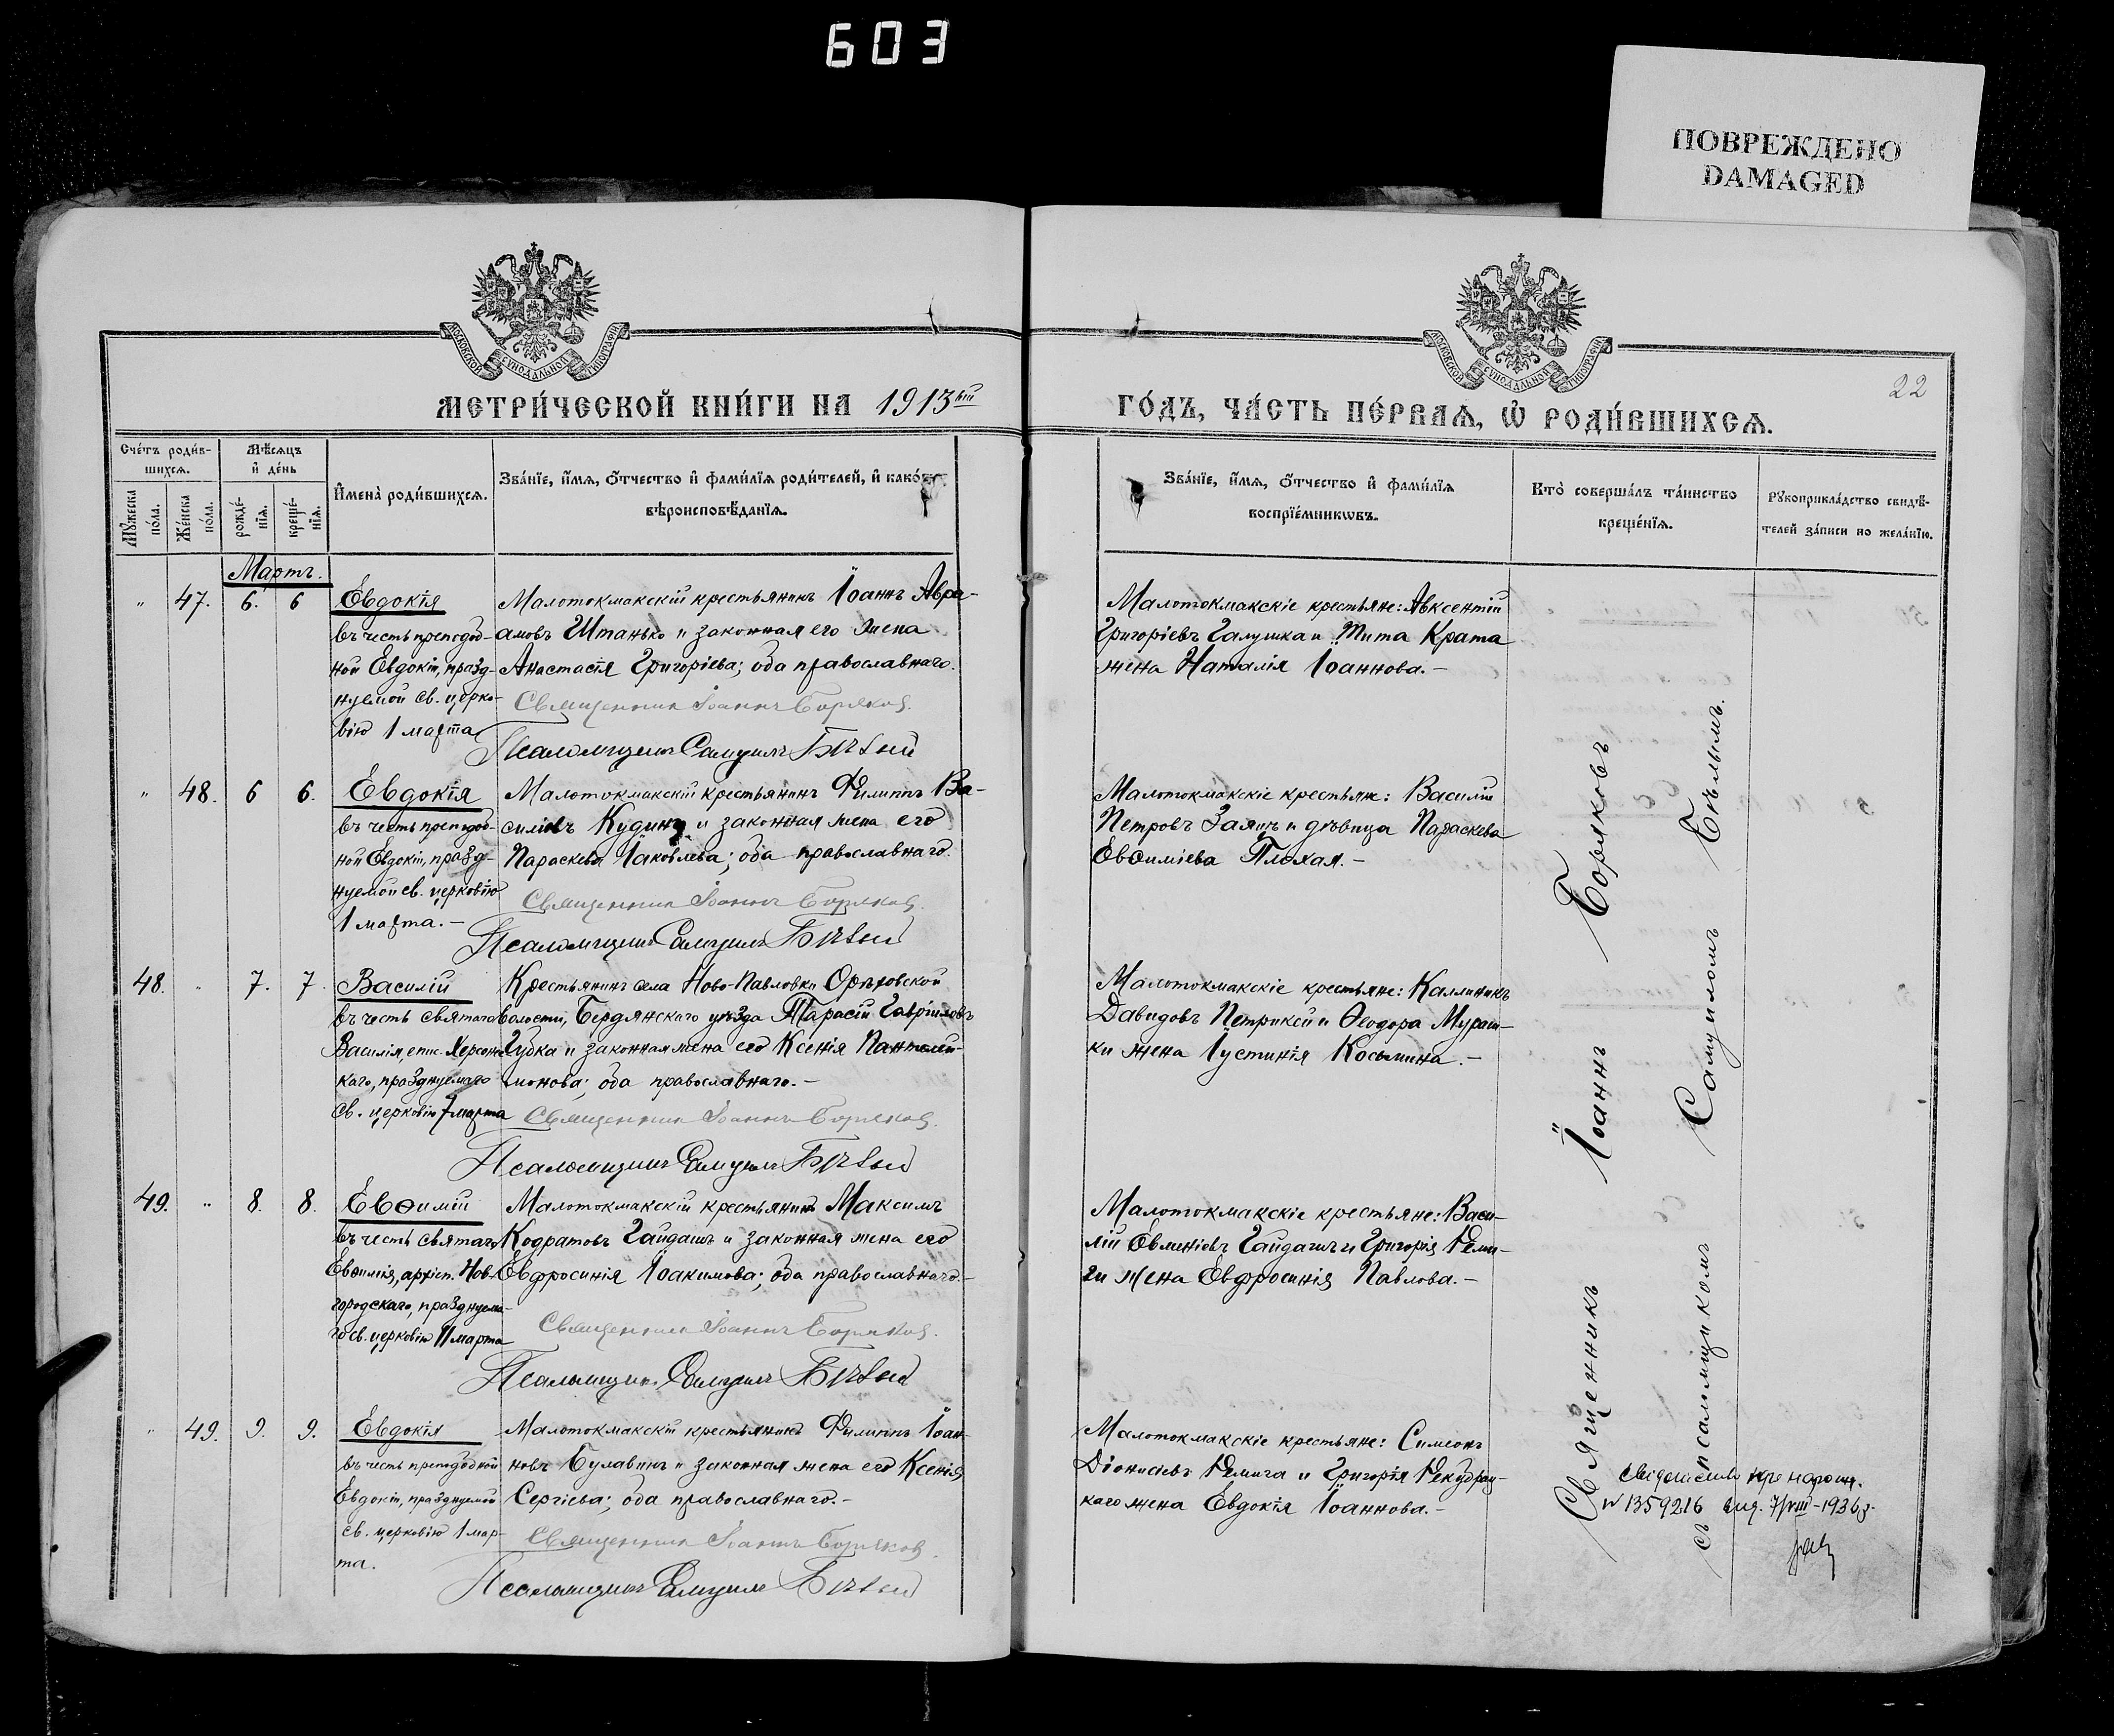 603
ПОВРЕЖДЕНО
DAMAGED
МОСКОВСКОЙ СѴНОДАЛЬНОЙ ТИПОГРАФІИ
МОСКОВСКОЙ СѴНОДАЛЬНОЙ ТИПОГРАФІИ
22
МЕТРИ́ЧЕСКОЙ КНИ́ГИ НА 1913ый
ГО́ДЪ, ЧА́СТЬ ПЕ́РВАѦ, Ѡ҆ РОДИ́ВШИХСѦ.
Сче́тъ роди́в-
шихсѧ.
Мꙋ́жеска по́ла.
Же́нска по́ла.
Мѣ́сѧцъ
и҆ де́нь
рожде́-
нїѧ.
креще́-
нїѧ.
И҆мена̀ роди́вшихсѧ.
Зва́нїе, и҆́мѧ, ѻ҆́тчество и҆ фами́лїѧ роди́телей, и҆ како́гѡ
вѣроисповѣ́данїѧ.
Зва́нїе, и҆́мѧ, ѻ҆́тчество и҆ фами́лїѧ
воспрїе́мникѡвъ.
Кто̀ соверша́лъ та́инство
креще́нїѧ.
Рꙋкоприкла́дство свидѣ́-
телей за́писи по жела́нїю.
Мартъ.
" 47. 6. 6
Евдокія
въ честь преподоб-
ной Евдокіи, празд-
нуемой св. церко-
вію 1 марта
Малотокмакскій крестьянинъ Іоаннъ Авра-
амовъ Штанько и законная его жена
Анастасія Григоріева; оба православнаго.
Священникъ Іоаннъ Боряковъ.
Псаломщикъ Самуилъ Бѣлый
Малотокмакскіе крестьяне: Авксентій
Григоріевъ Галушка и Тита Крата
жена Наталія Іоаннова.-
" 48. 6 6.
Евдокія
въ честь преподоб-
ной Евдокіи, празд-
нуемой св. церковію
1 марта.-
Малотокмакскій крестьянинъ Филиппъ Ва-
силіевъ Кудинъ и законная жена его
Параскева Іаковлева; оба православнаго.
Священникъ Іоаннъ Боряковъ.
Псаломщикъ Самуилъ Бѣлый
Малотокмакскіе крестьяне: Василій
Петровъ Заяцъ и дѣвица Параскева
Евѳиміева Плохая.-
48. " 7. 7.
Василій
въ честь святаго
Василія, епис. Херсонс-
каго, празднуемаго
св. церковію 7 марта
Крестьянинъ села Ново-Павловки Орѣховской
волости, Бердянскаго уѣзда Тарасій Гавріиловъ
Губка и законная жена его Ксенія Пантелей-
монова; оба православнаго.-
Священникъ Іоаннъ Боряковъ.
Псаломщикъ Самуилъ Бѣлый
Малотокмакскіе крестьяне: Каллиникъ
Давидовъ Петриксій и Ѳеодора Мураш-
ки жена Іустинія Косьмина.-
49. " 8. 8.
Евѳимій
въ честь святаго
Евѳимія, архіеп. Нов-
городскаго, празднуема-
го св. церковію 11 марта
Малотокмакскій крестьянинъ Максимъ
Кодратовъ Гайдашъ и законная жена его
Евфросинія Іоакимова; оба православнаго.-
Священникъ Іоаннъ Боряковъ.
Псаломщикъ Самуилъ Бѣлый
Малотокмакскіе крестьяне: Васи-
лій Евменіевъ Гайдашъ и Григорія Реми-
ги жена Евфросинія Павлова.-
" 49. 9. 9.
Евдокія
въ честь преподобной
Евдокіи, празднуемой
св. церковію 1 мар-
та.
Малотокмакскій крестьянинъ Филиппъ Іоан-
новъ Булавинъ и законная жена его Ксенія
Сергіева; оба православнаго.-
Священникъ Іоаннъ Боряковъ.
Псаломщикъ Самуилъ Бѣлый
Малотокмакскіе крестьяне: Симеонъ
Діонисіевъ Ремига и Григорія
каго жена Евдокія Іоаннова.-
Священникъ Іоаннъ Боряковъ
съ псаломщикомъ Самуиломъ Бѣлымъ.
N 1359216 выд. 7/VIII-1936г.